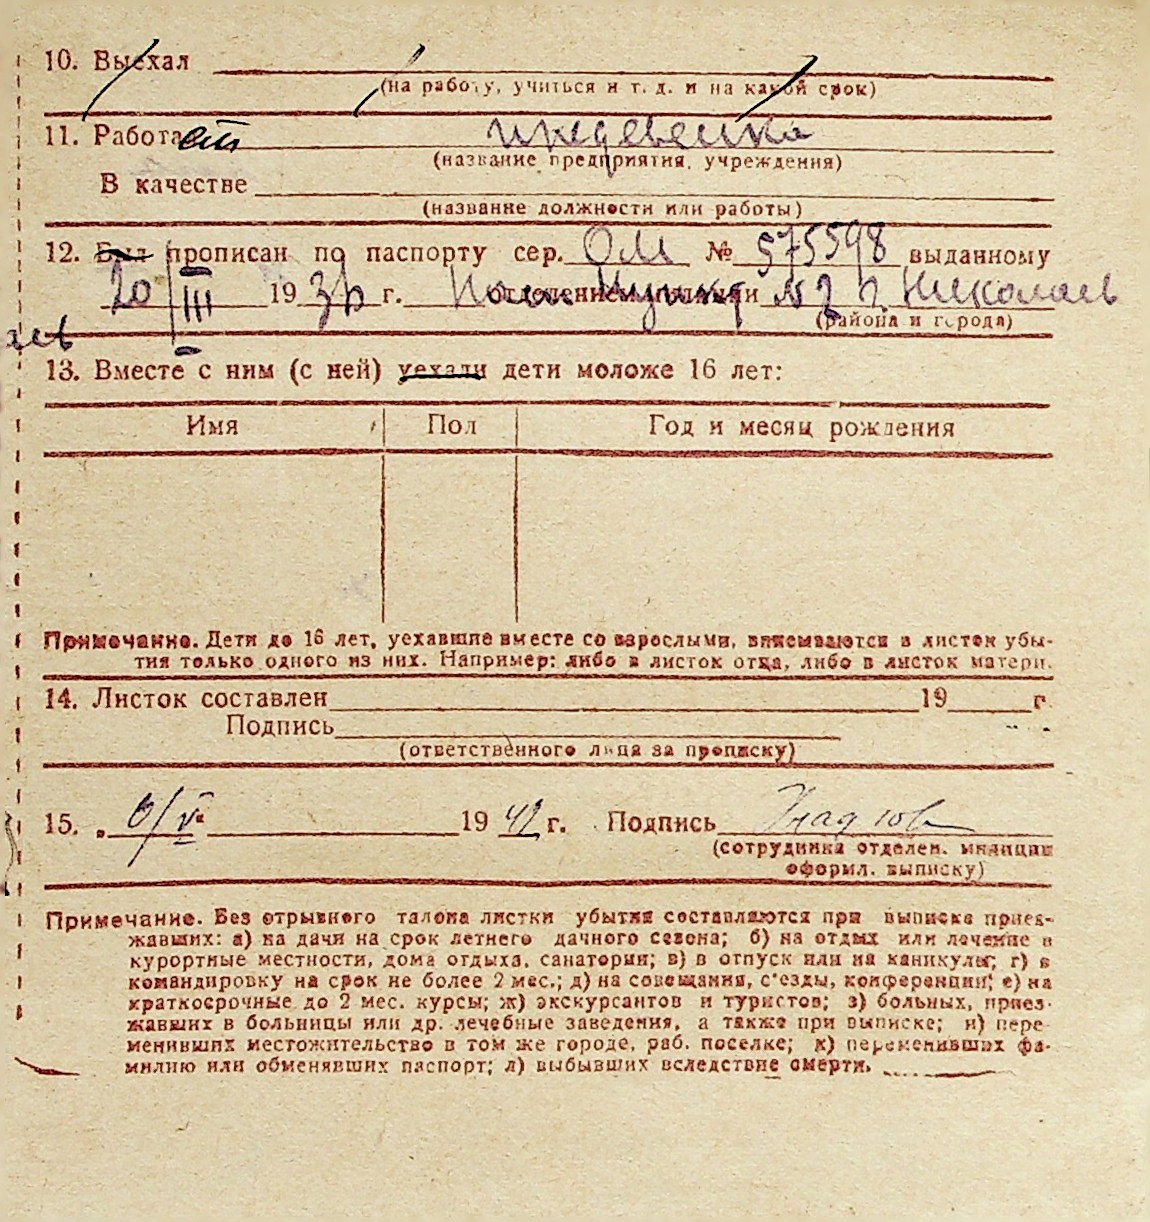 10. Выехал
(на работу, учиться и т. д. и на какой срок)
11. Работает иждевенка
(название предприятия, учреждения)
В качестве
(название должности или работы)
12. Был прописан по паспорту сер. ОМ № 575598 выданному
20/III 19 г. отделением милиции №2 г. Николаев
(района и города)
аев
13. Вместе с ним (с ней) уехали дети моложе 16 лет:
Имя Пол Год и месяц рождения
Примечание. Дети до 16 лет, уехавшие вместе со взрослыми, вписываются в листок убы-
тия только одного из них. Например: либо в листок отца, либо в листок матери.
14. Листок составлен 19 г.
Подпись
(ответственного лица за прописку)
15. „ 6/V 19 41 г. Подпись
(сотрудника отделен. милиции
оформ. выписку)
Примечание. Без отрывного талона листки убытия составляются при выписке приез-
жавших: а) на дачи на срок летнего дачного сезона; б) на отдых или лечение в
курортные местности, дома отдыха, санатории; в) в отпуск или на каникулы; г) в
командировку на срок не более 2 мес.; д) на совещания, с'езды, конференции; е) на
краткосрочные до 2 мес. курсы; ж) экскурсантов и туристов; з) больных, приез-
жавших в больницы или др. лечебные заведения, а также при выписке; и) пере-
менивших местожительство в том же городе, раб. поселке; к) переменивших фа-
милию или обменявших паспорт; л) выбывших вследствие смерти.